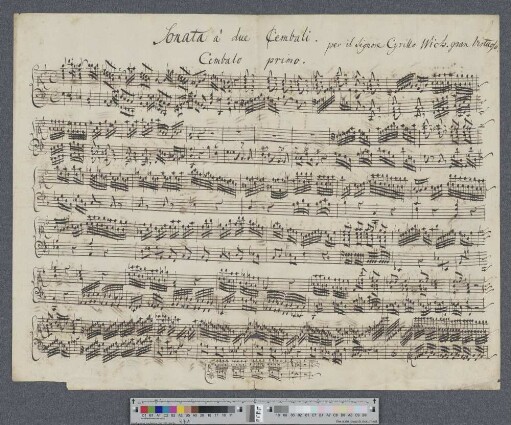 Sonata à due Cembali. per il Signore Cyrillo Wich, gran Virtuoso
Cembalo primo.